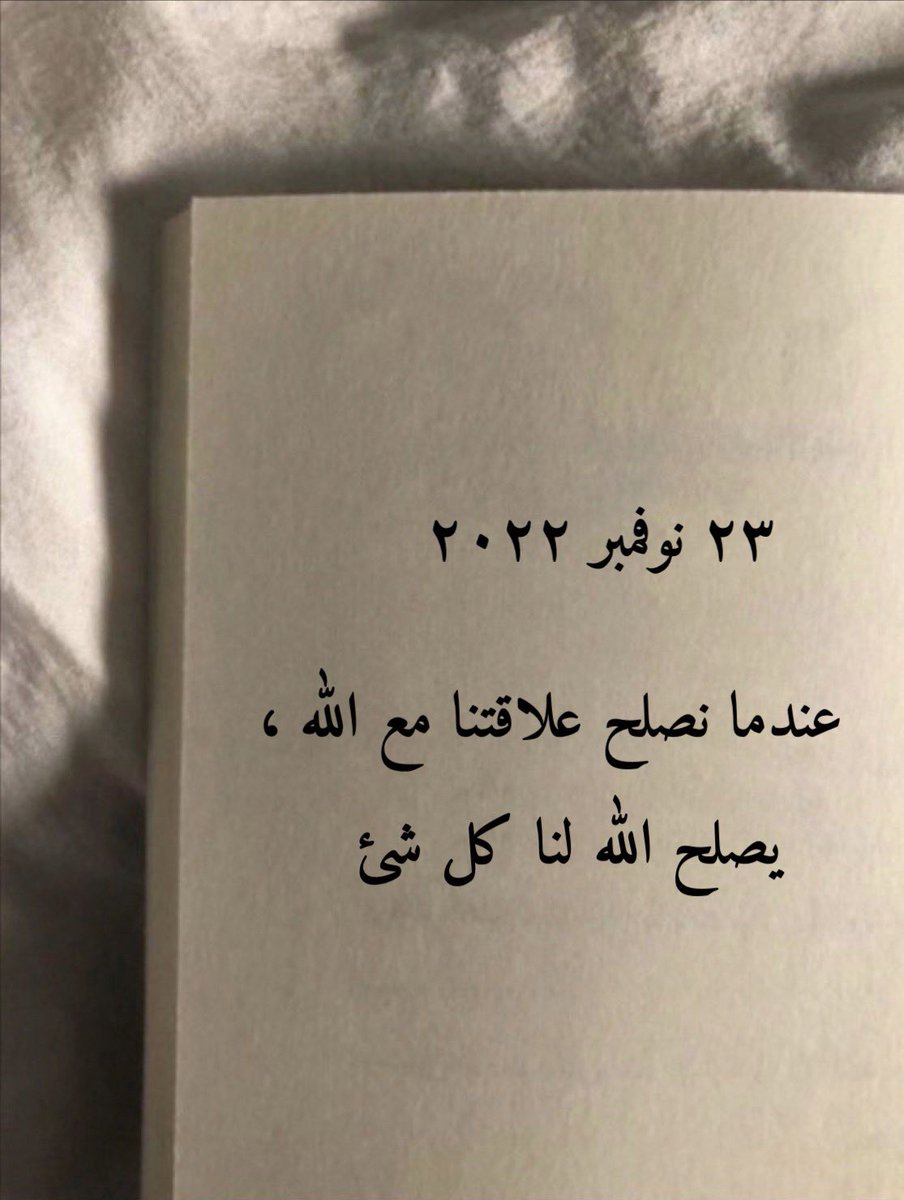 ٢٣ نوفمبر ٢٠٢٢
عندما نصلح علاقتنا مع الله ،
يصلح الله لنا كل شئ